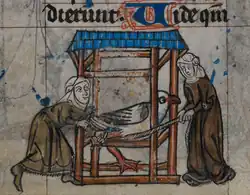 dierunt. Vide qm̄